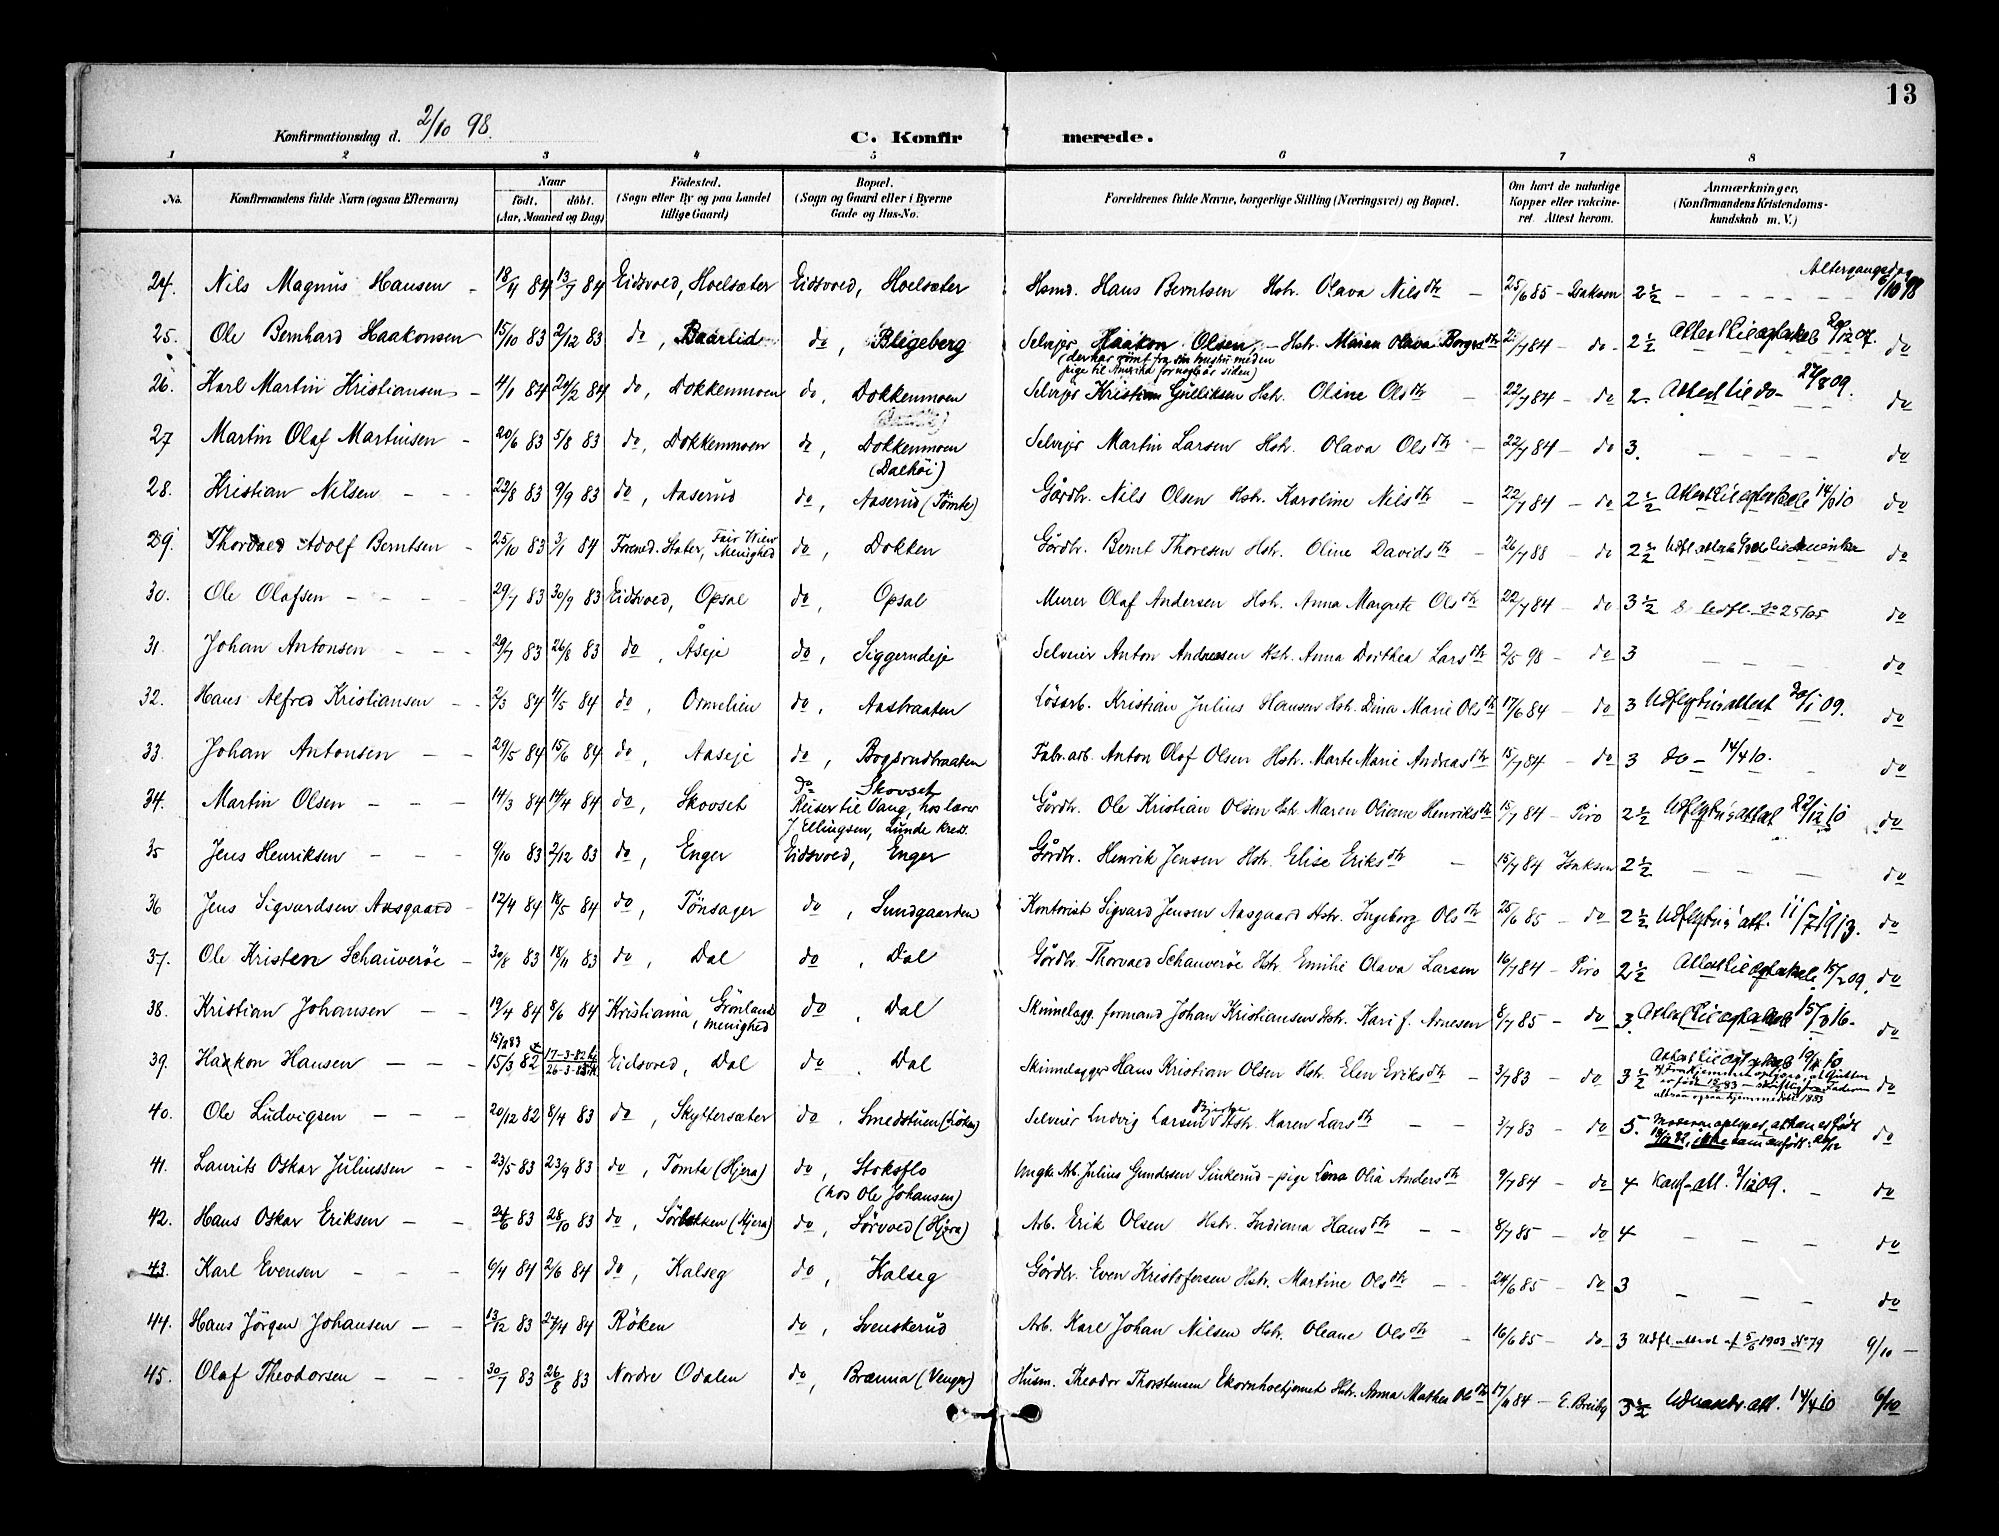 13
Konfirmationsdag d. 2/10 98.
C. Konfirmerede.
1 2 3 4 5 6 7 8
No. Konfirmandens fulde Navn (ogsaa Efternavn) Naar født. døbt. (Aar, Maaned og Dag) Fødested. (Sogn eller By og paa Landet tillige Gaard) Bopæl. (Sogn og Gaard eller i Byerne Gade og Hus-No. Forældrenes fulde Navne, borgerlige Stilling (Næringsvei) og Bopæl. Om havt de naturlige Kopper eller vakcineret. Attest herom. Anmærkninger. (Konfirmandens Kristendomskundskab m. V.)
Altergangsdag
24. Nils Magnus Hansen - 18/4 84 13/7 84 Eidsvold, Hoelsæter Eidsvold, Hoelsæter Hsmd. Hans Berntsen Hstr. Olava Nilsdtr - 25/6 85 - Isaksen 2 1/2 - - - - 6/10 98
25. Ole Bernhard Haakonsen 15/10 83 2/12 83 do, Baarlid do, Bligeberg Selvejer Haakon Olsen - Hstr. Maren Olava Borgersdtr 2/7 84 - do - 2 1/2 Attest til ægteskab 20/12 07. do
(der har rømt fra sin hustru med en
pige til Amerika for nogle år siden)
26. Karl Martin Kristiansen - 4/1 84 24/2 84 do, Dokkenmoen do, Dokkenmoen Selvejer Kristian Gulliksen Hstr. Oline Olsdtr - 22/7 84 - do 2 - Attest til do - 27/8 09. do
27 Martin Olaf Martinsen - 20/6 83 5/8 83 do, Dokkenmoen do, Dokkenmoen Selvejer Martin Larsen Hstr. Olava Olsdtr - 22/7 84 - do 3. - - - - do
(Dalhöi)
28. Kristian Nilsen - - - 22/8 83 9/9 83 do, Aaserud do, Aaserud (Tömte) Gårdbr. Nils Olsen Hstr. Karoline Nilsdtr - 22/7 84 - do 2 1/2 Attest til ægteskab 14/9 10 do
29. Thorvald Adolf Berntsen - 25/10 83 3/1 84 Forened. Stater, Fair View Menighed do, Dokken Gårdbr. Bernt Thoresen Hstr. Oline Davidsdtr - 26/7 88 - do 2 1/2 Udfl. attest til Amerika do
30. Ole Olafsen - - - - 29/7 83 30/9 83 Eidsvold, Opsal do, Opsal Murer Olaf Andersen Hstr. Anna Margrete Olsdtr 22/7 84 - do 3 1/2 Udfl. do
31. Johan Antonsen - - - 29/7 83 26/8 83 do, Åseje do, Siggerudeje Selveier Anton Andresen Hstr. Anna Dorthea Larsdtr 2/5 98 - do 3 - - - do
32. Hans Alfred Kristiansen - - 2/3 84 4/5 84 do, Ormelien do, Aasbraaten Lösarb. Kristian Julius Hansen Hstr. Dina Marie Olsdtr 17/6 84 - do 3 Udflytnis attest 20/1 09. do
33. Johan Antonsen - - 29/5 84 15/6 84 do, Aaseje do, Bogsrudbraaten Fabr.arb. Anton Olaf Olsen Hstr. Marte Marie Andreasdtr 15/7 84 - do 3 do - 14/4 10. - do
34. Martin Olsen - - - 14/3 84 14/4 84 do, Skovset do Skovset Gårdbr. Ole Kristian Olsen Hstr. Maren Oliane Henriksdtr 15/7 84 - Piro 2 1/2 Udflytnis attest 22/12 10 do
Reiser til Vang, hos lærer
J. Ellingsen, Lunde kreds.
35 Jens Henriksen - - - 9/10 83 2/12 83 do, Enger Eidsvold, Enger Gårdbr. Henrik Jensen Hstr. Elise Eriksdtr - 15/7 84 Isaksen 2 1/2 - - - do
36 Jens Sigvardsen Aasgaard - 12/4 84 18/5 84 do, Tönsager do, Sundgaarden Kontorist Sigvard Jensen Aasgaard Hstr. Ingeborg Olsdtr 25/6 85 - do 2 1/2 Udflytnis att. 11/7 1913. do
37. Ole Kristen Schauveröe - 30/8 83 18/11 83 do, Dal do, Dal Gårdbr. Thorvald Schauveröe Hstr. Emilie Olava Larsen 16/7 84 - Piro 2 1/2 Attest til ægteskab 15/2 09. do
38. Kristian Johansen - - 19/4 84 8/6 84 Kristiania, Grönland menighed do, Dal Skinnelægg. formand Johan Kristiansen Hstr. Kari f. Arnesen 8/7 85 - do 3. Attest til ægteskab 15/8 16 - do
39. Haakon Hansen - - 15/2 83 15/3 82 17-3-82 26-3-82 Eidsvold, Dal do. Dal Skinnelægger Hans Kristian Olsen Hstr. Elen Eriksdtr - 3/7 83 - do 3 1/2 Attest til ægteskab 19/11 10 do
40. Ole Ludvigsen - - 20/12 82 8/4 83 do, Skyttersæter do, Smedstuen (Löken) Selveier Ludvig Larsen Hstr. Karen Larsdtr - - 3/7 83 - do 5. Moderen oplyser, at han er født do
41. Laurits Oskar Juliussen - - 23/5 83 23/9 83 do, Tömte (Hjera) do, Stoksflo Ungk. Arb. Julius Gundersen Sinkerud - pige Lena Olia Andersdtr 9/7 84 - do 4 Konf-att. 3/12 09. - do
(hos Ole Johansen)
42. Hans Oskar Eriksen - - 24/6 83 28/10 83 do, (Hjera) do, Sörvold (Hjera) Arb. Erik Olsen Hstr. Indiana Hansdtr - - 8/7 85 - do 4 - - - do
43. Karl Evensen - - - 6/4 84 2/6 84 do, Kalseg do, Kalseg Gårdbr. Even Kristofersen Hstr. Martine Olsdtr - - 24/6 85 - do 3 - - - do
44. Hans Jörgen Johansen - - 13/12 83 27/4 84 Röken do, Svenskerud Arb. Karl Johan Nilsen Hstr. Oleane Olsdtr - 16/6 85 - do 3 Udfl. attest af 5/6 1903 No 79 9/10 -
45. Olaf Theodorsen - - - 30/7 83 26/8 83 Nordre Odalen do, Brænna (Venger) Husm. Theodor Thorstensen Ekornholtjernet Hstr. Anna Mathea Olsdtr 17/11 84 - E. Breiby 3 1/2 Udvandr. att. 14/4 10 6/10